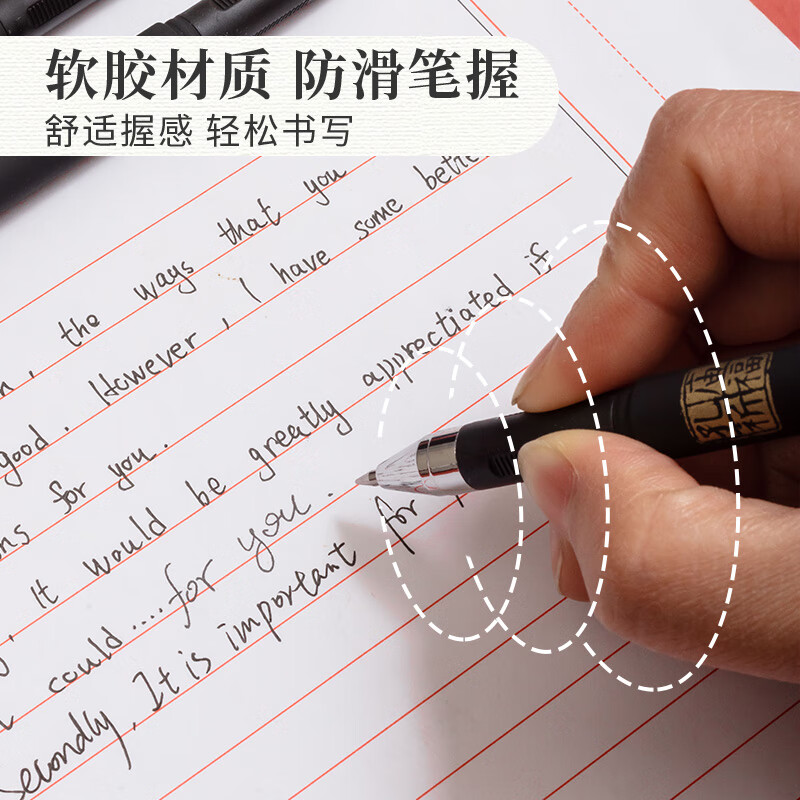 软胶材质 防滑笔握
舒适握感 轻松书写
the ways that you
good. However, I have some
for you.
, it would be greatly appretiated if
could....for you.
Secondly, It is important for
孔庙祈福